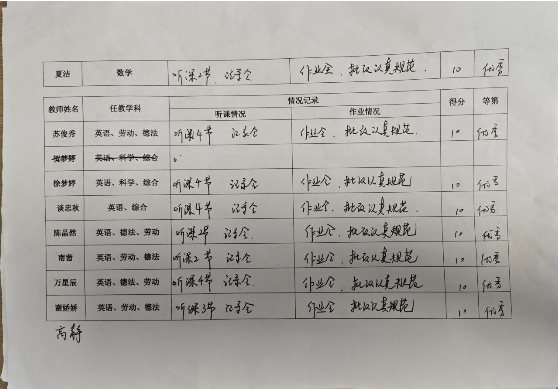 夏洁 数学 听课2节 记录全 作业全、批改认真规范. 10 优秀
教师姓名 任教学科 情况记录 得分 等第
听课情况 作业情况
苏俊秀 英语、劳动、德法 听课4节 记录全 作业全、批改认真规范 10 优秀
英语、科学、综合
徐梦婷 英语、科学、综合 听课4节 记录全 作业全、批改认真规范 10 优秀
谈忠秋 英语、综合 听课4节 记录全 作业全、批改认真规范 10 优秀
陈晶然 英语、德法、劳动 听课2节 记录全. 作业全、批改认真规范 10 优秀
南茜 英语、劳动、德法 听课2节 记录全 作业全、批改认真规范 10 优秀
万星辰 英语、德法、劳动 听课4节 记录全 作业全、批改认真规范 10 优秀
谢娇娇 英语、劳动、德法 听课3节 记录全 作业全、批改认真规范 10 优秀